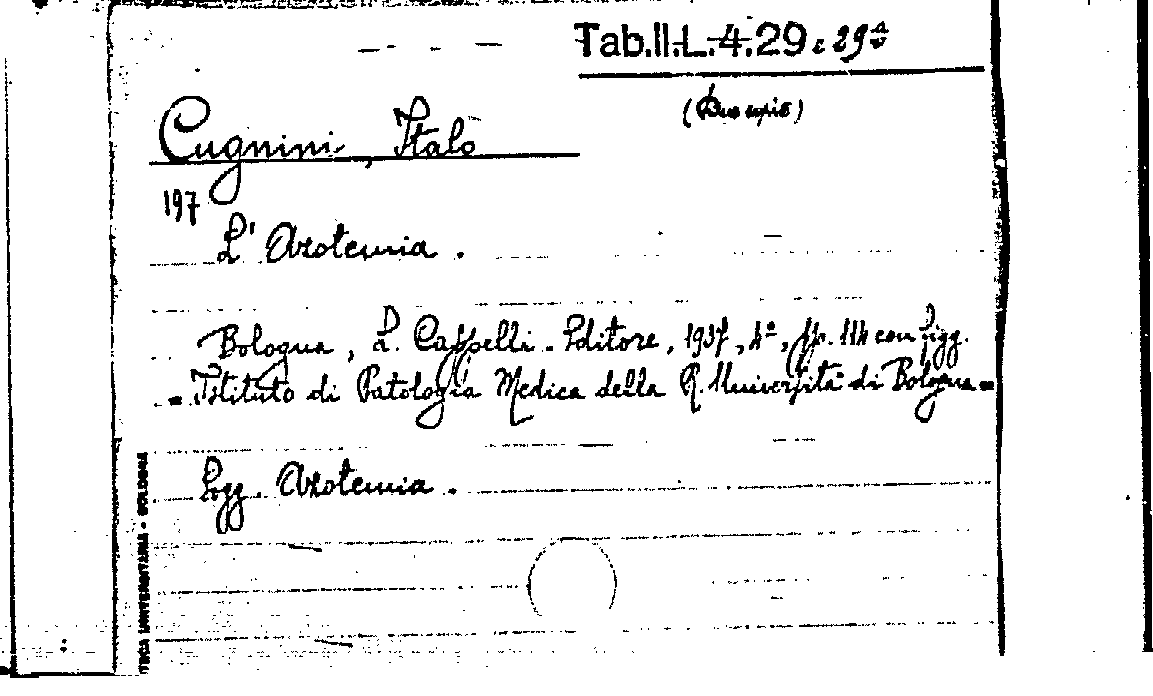 Tab.II.L.4.29 e 29ᵃ
(Due copie)
Cugnini, Italo
197
L'Azotemia.
Bologna, L. Cappelli - Editore, 1937, 4º, pp. 114 con figg.
= Istituto di Patologia Medica della R. Università di Bologna =
Sogg. Azotemia.
TECA UNIVERSITARIA - BOLOGNA